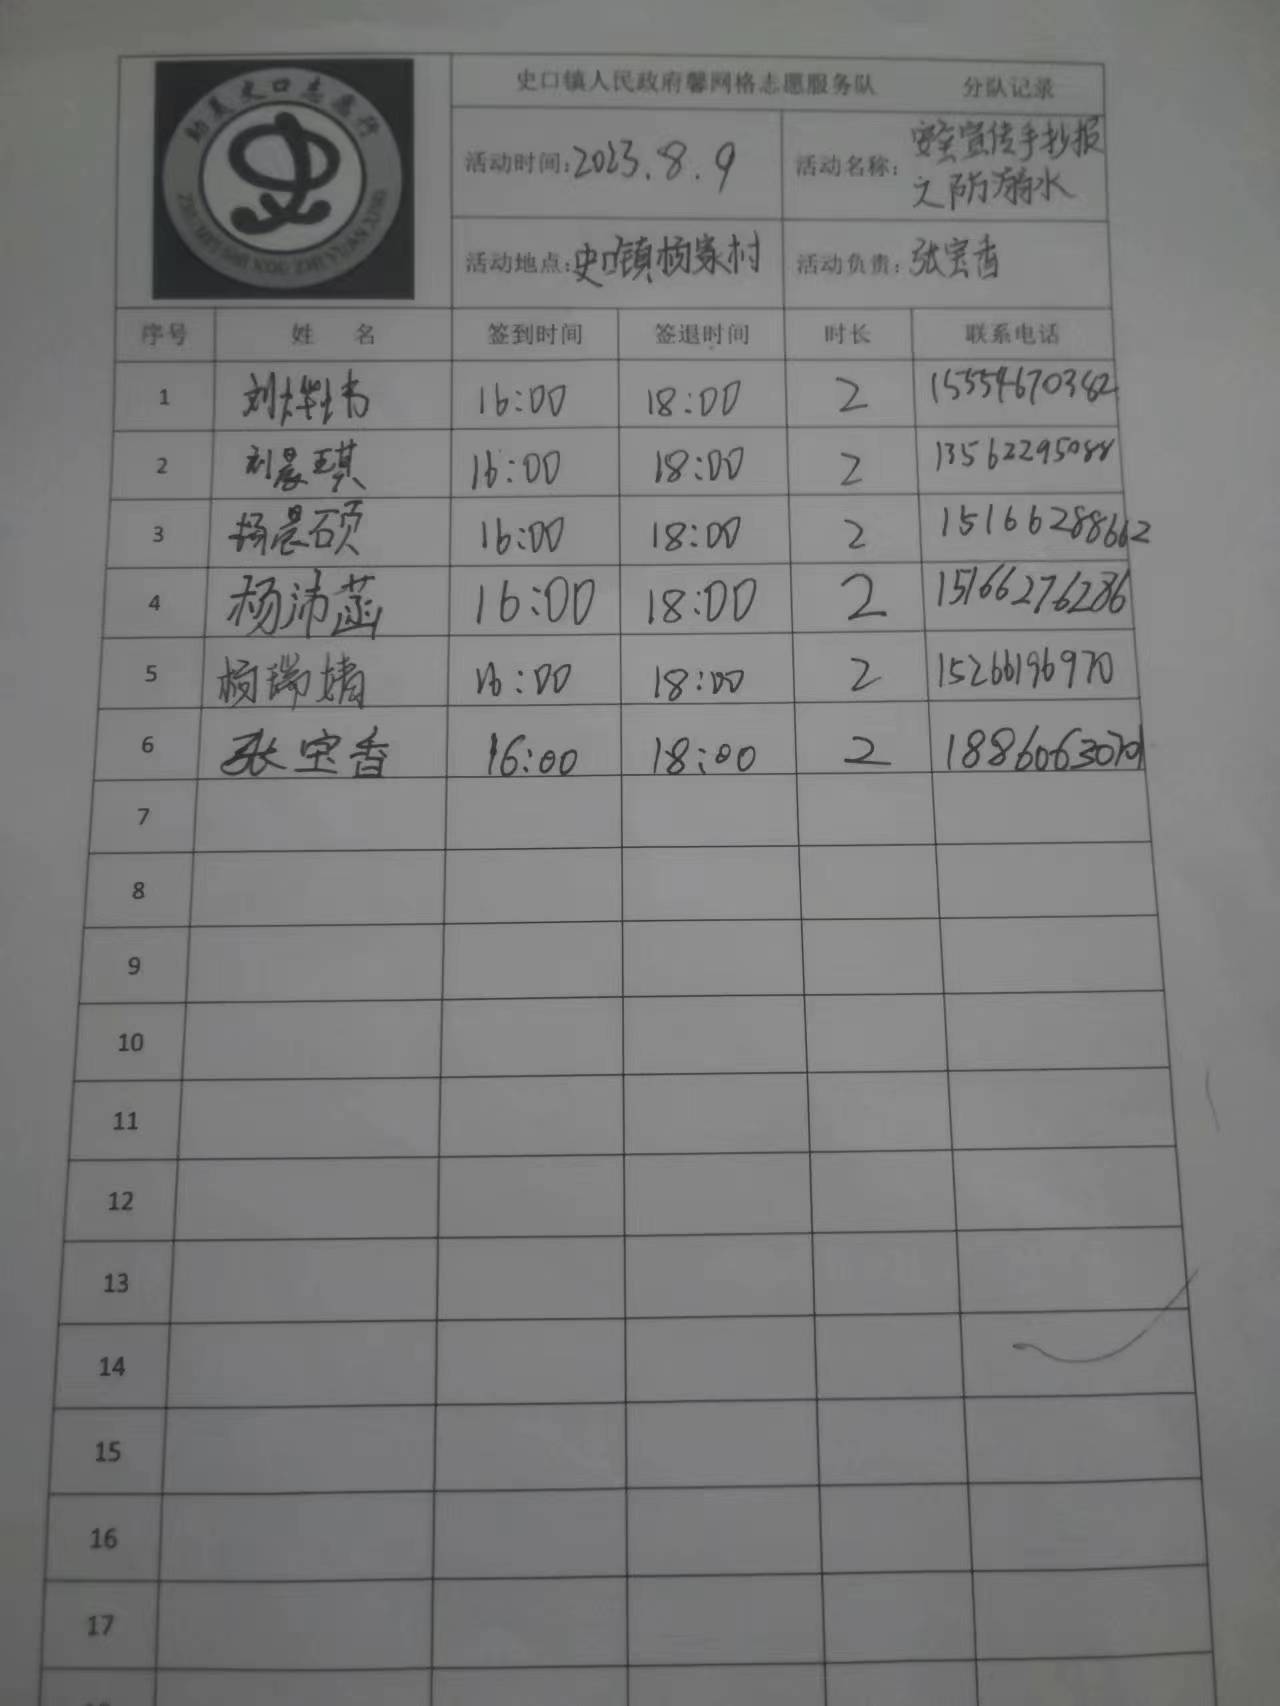 助美史口志愿行
ZHU MEI SHI KOU ZHI YUAN XING
史口镇人民政府馨网格志愿服务队 分队记录
活动时间:2023.8.9 活动名称:安全宣传手抄报
之防溺水
活动地点:史口镇杨家村 活动负责:张宝香
序号 姓 名 签到时间 签退时间 时长 联系电话
1 刘烨炜 16:00 18:00 2 15554670382
2 刘晨琪 16:00 18:00 2 13562295088
3 杨晨硕 16:00 18:00 2 15166288662
4 杨沛菡 16:00 18:00 2 15166276286
5 杨瑞婧 16:00 18:00 2 15266196970
6 张宝香 16:00 18:00 2
7
8
9
10
11
12
13
14
15
16
17